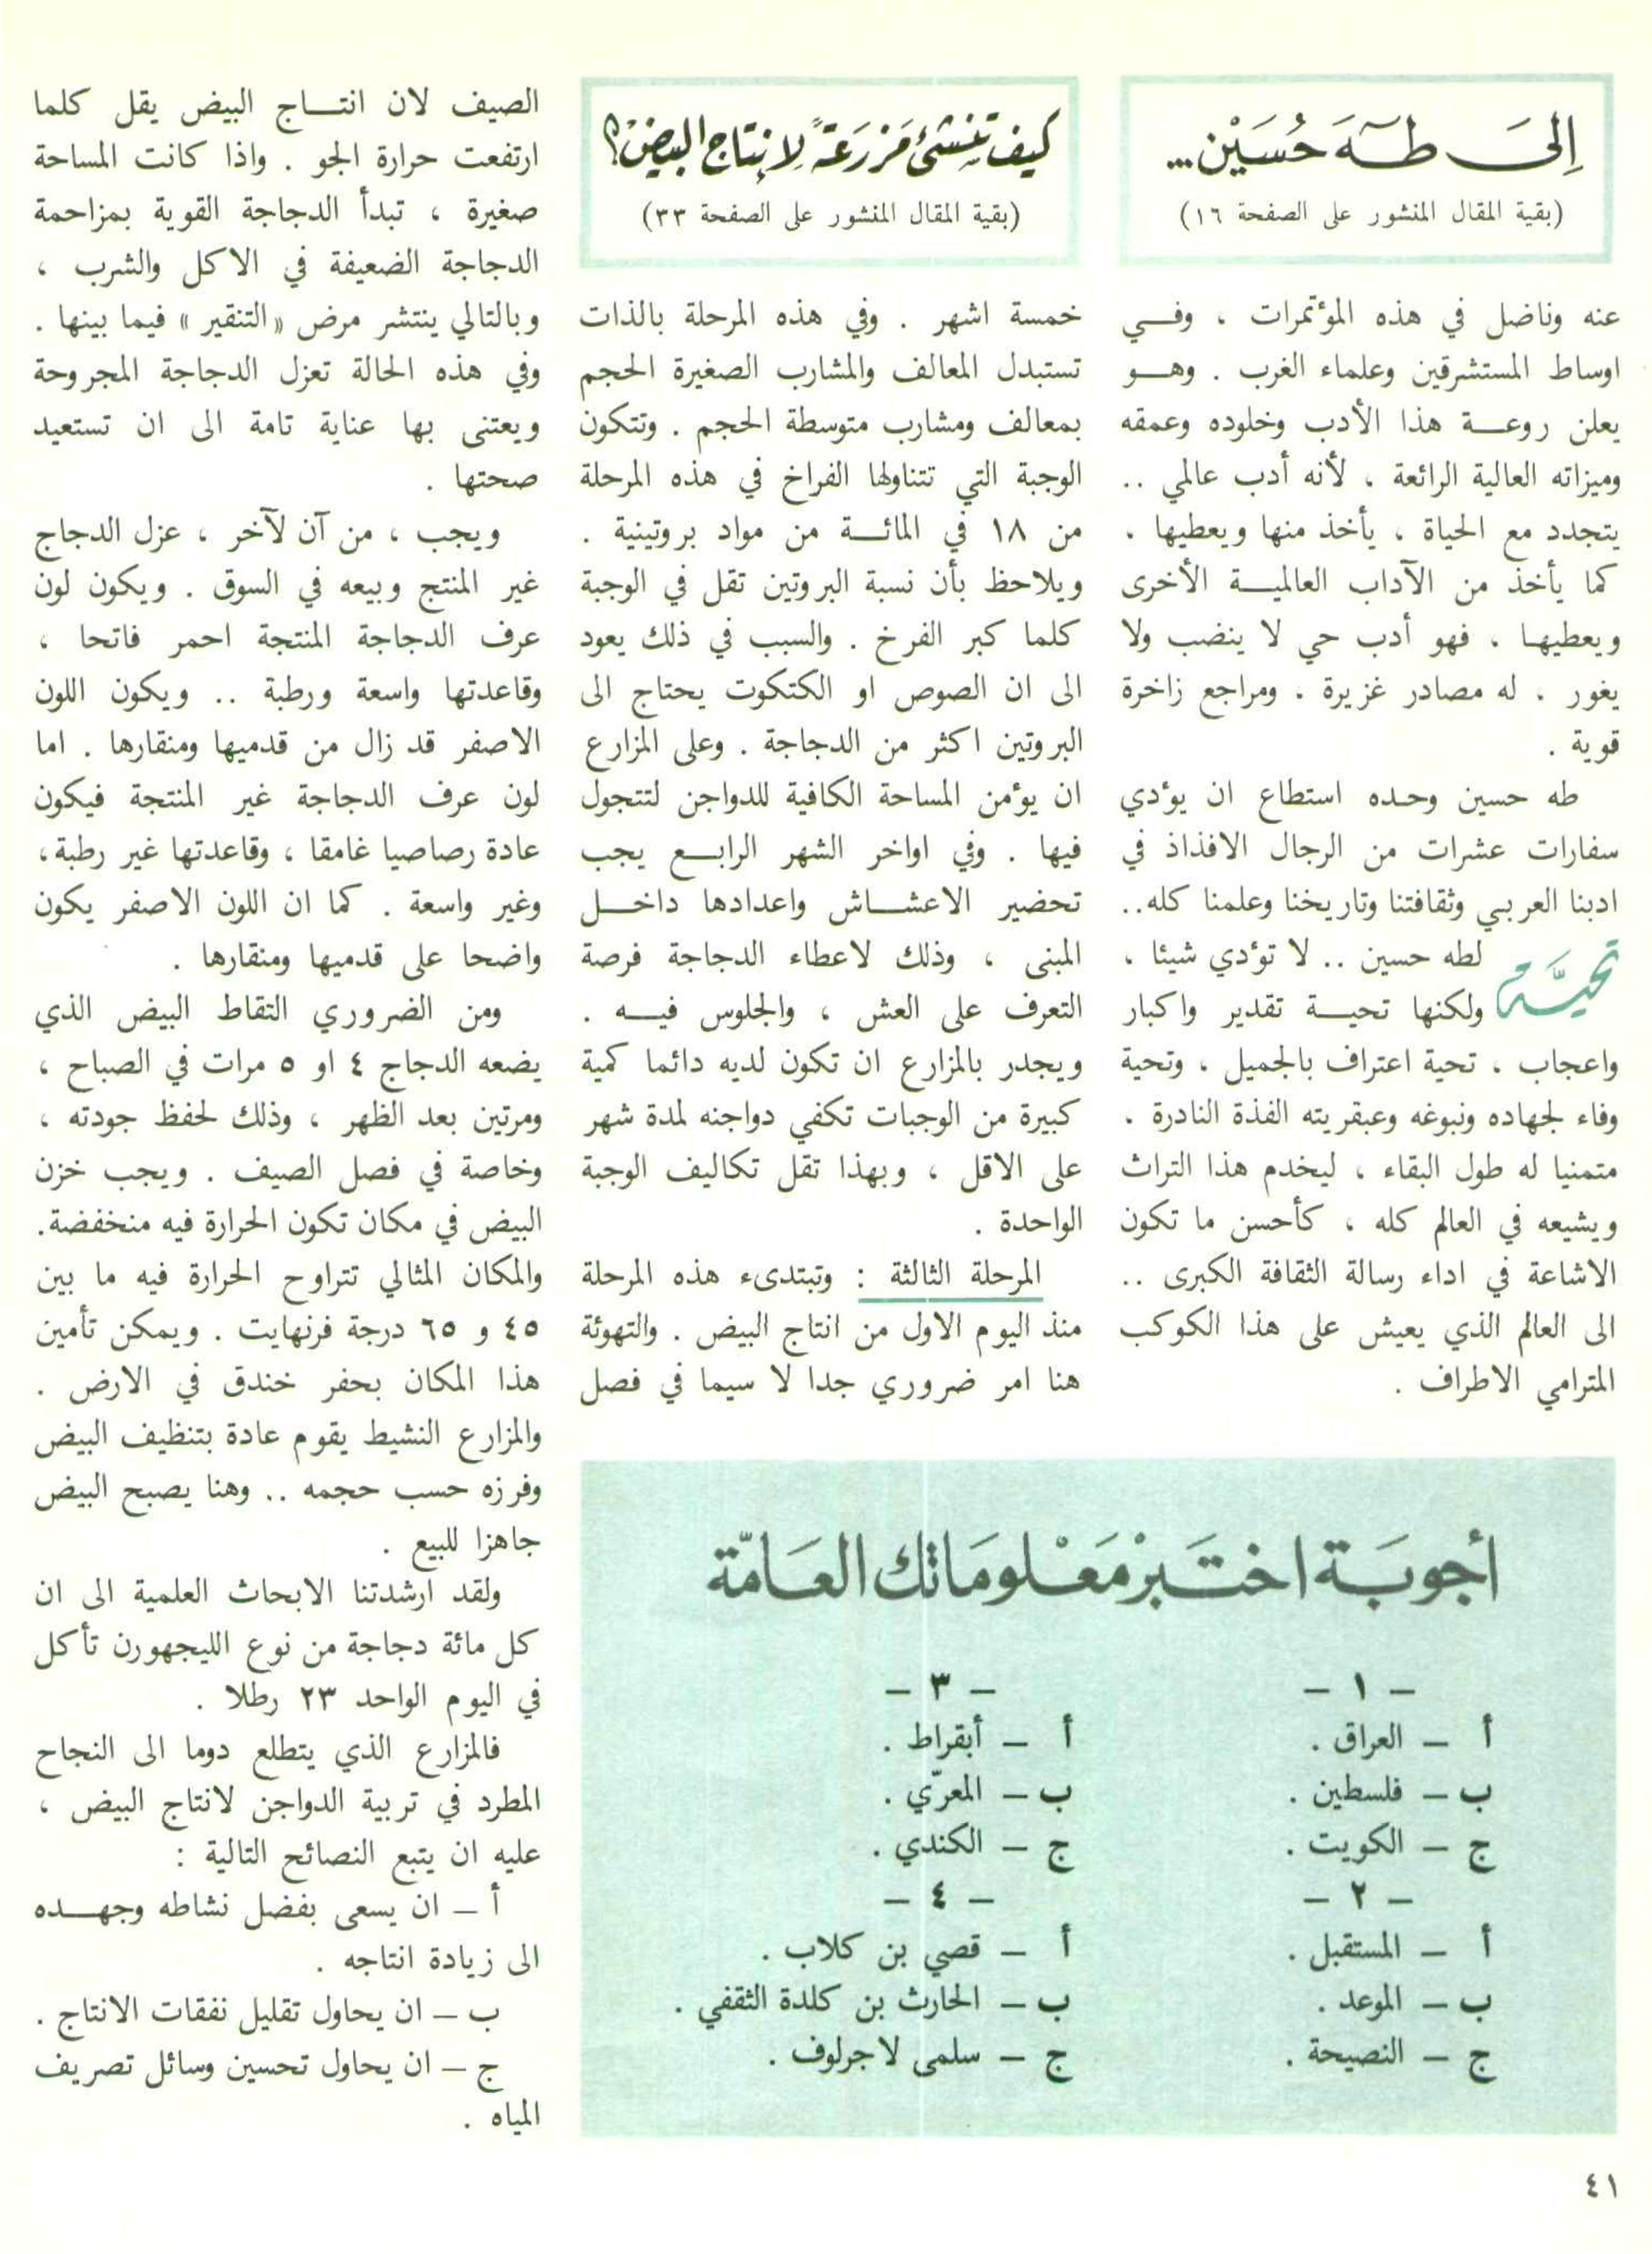 إلى طه حُسَيْن...
(بقية المقال المنشور على الصفحة ١٦)
عنه وناضل في هذه المؤتمرات ، وفي
اوساط المستشرقين وعلماء الغرب . وهو
يعلن روعة هذا الأدب وخلوده وعمقه
وميزاته العالية الرائعة ، لأنه أدب عالمي ..
يتجدد مع الحياة ، يأخذ منها ويعطيها .
كما يأخذ من الآداب العالمية الأخرى
ويعطيها . فهو أدب حي لا ينضب ولا
يغور . له مصادر غزيرة . ومراجع زاخرة
قوية .
طه حسين وحده استطاع ان يؤدي
سفارات عشرات من الرجال الافذاذ في
ادبنا العربي وثقافتنا وتاريخنا وعلمنا كله..
تحيَّة لطه حسين .. لا تؤدي شيئا ،
ولكنها تحية تقدير واكبار
واعجاب ، تحية اعتراف بالجميل ، وتحية
وفاء لجهاده ونبوغه وعبقريته الفذة النادرة .
متمنيا له طول البقاء ، ليخدم هذا التراث
ويشيعه في العالم كله ، كأحسن ما تكون
الاشاعة في اداء رسالة الثقافة الكبرى ..
الى العالم الذي يعيش على هذا الكوكب
المترامي الاطراف .
كيف تنشئ مَزرَعَةً لإنتاج البيض؟
(بقية المقال المنشور على الصفحة ٣٣)
خمسة اشهر . وفي هذه المرحلة بالذات
تستبدل المعالف والمشارب الصغيرة الحجم
بمعالف ومشارب متوسطة الحجم . وتتكون
الوجبة التي تتناولها الفراخ في هذه المرحلة
من ١٨ في المائة من مواد بروتينية .
ويلاحظ بأن نسبة البروتين تقل في الوجبة
كلما كبر الفرخ . والسبب في ذلك يعود
الى ان الصوص او الكتكوت يحتاج الى
البروتين اكثر من الدجاجة . وعلى المزارع
ان يؤمن المساحة الكافية للدواجن لتتجول
فيها . وفي اواخر الشهر الرابع يجب
تحضير الاعشاش واعدادها داخل
المبنى ، وذلك لاعطاء الدجاجة فرصة
التعرف على العش ، والجلوس فيه .
ويجدر بالمزارع ان تكون لديه دائما كمية
كبيرة من الوجبات تكفي دواجنه لمدة شهر
على الاقل ، وبهذا تقل تكاليف الوجبة
الواحدة .
المرحلة الثالثة : وتبتدىء هذه المرحلة
منذ اليوم الاول من انتاج البيض . والتهوئة
هنا امر ضروري جدا لا سيما في فصل
الصيف لان انتاج البيض يقل كلما
ارتفعت حرارة الجو . واذا كانت المساحة
صغيرة ، تبدأ الدجاجة القوية بمزاحمة
الدجاجة الضعيفة في الاكل والشرب ،
وبالتالي ينتشر مرض «التنقير» فيما بينها .
وفي هذه الحالة تعزل الدجاجة المجروحة
ويعتنى بها عناية تامة الى ان تستعيد
صحتها .
ويجب ، من آن لآخر ، عزل الدجاج
غير المنتج وبيعه في السوق . ويكون لون
عرف الدجاجة المنتجة احمر فاتحا ،
وقاعدتها واسعة ورطبة .. ويكون اللون
الاصفر قد زال من قدميها ومنقارها . اما
لون عرف الدجاجة غير المنتجة فيكون
عادة رصاصيا غامقا ، وقاعدتها غير رطبة،
وغير واسعة . كما ان اللون الاصفر يكون
واضحا على قدميها ومنقارها .
ومن الضروري التقاط البيض الذي
يضعه الدجاج ٤ او ٥ مرات في الصباح ،
ومرتين بعد الظهر ، وذلك لحفظ جودته ،
وخاصة في فصل الصيف . ويجب خزن
البيض في مكان تكون الحرارة فيه منخفضة.
والمكان المثالي تتراوح الحرارة فيه ما بين
٤٥ و ٦٥ درجة فرنهايت . ويمكن تأمين
هذا المكان بحفر خندق في الارض .
والمزارع النشيط يقوم عادة بتنظيف البيض
وفرزه حسب حجمه .. وهنا يصبح البيض
جاهزا للبيع .
ولقد ارشدتنا الابحاث العلمية الى ان
كل مائة دجاجة من نوع الليجهورن تأكل
في اليوم الواحد ٢٣ رطلا .
فالمزارع الذي يتطلع دوما الى النجاح
المطرد في تربية الدواجن لانتاج البيض ،
عليه ان يتبع النصائح التالية :
أ – ان يسعى بفضل نشاطه وجهده
الى زيادة انتاجه .
ب – ان يحاول تقليل نفقات الانتاج .
ج – ان يحاول تحسين وسائل تصريف
المياه .
أجوبَة اختَبرْ مَعْلومَاتك العَامّة
– ١ –
أ – العراق .
ب – فلسطين .
ج – الكويت .
– ٢ –
أ – المستقبل .
ب – الموعد .
ج – النصيحة .
– ٣ –
أ – أبقراط .
ب – المعرّي .
ج – الكندي .
– ٤ –
أ – قصي بن كلاب .
ب – الحارث بن كلدة الثقفي .
ج – سلمى لاجرلوف .
٤١